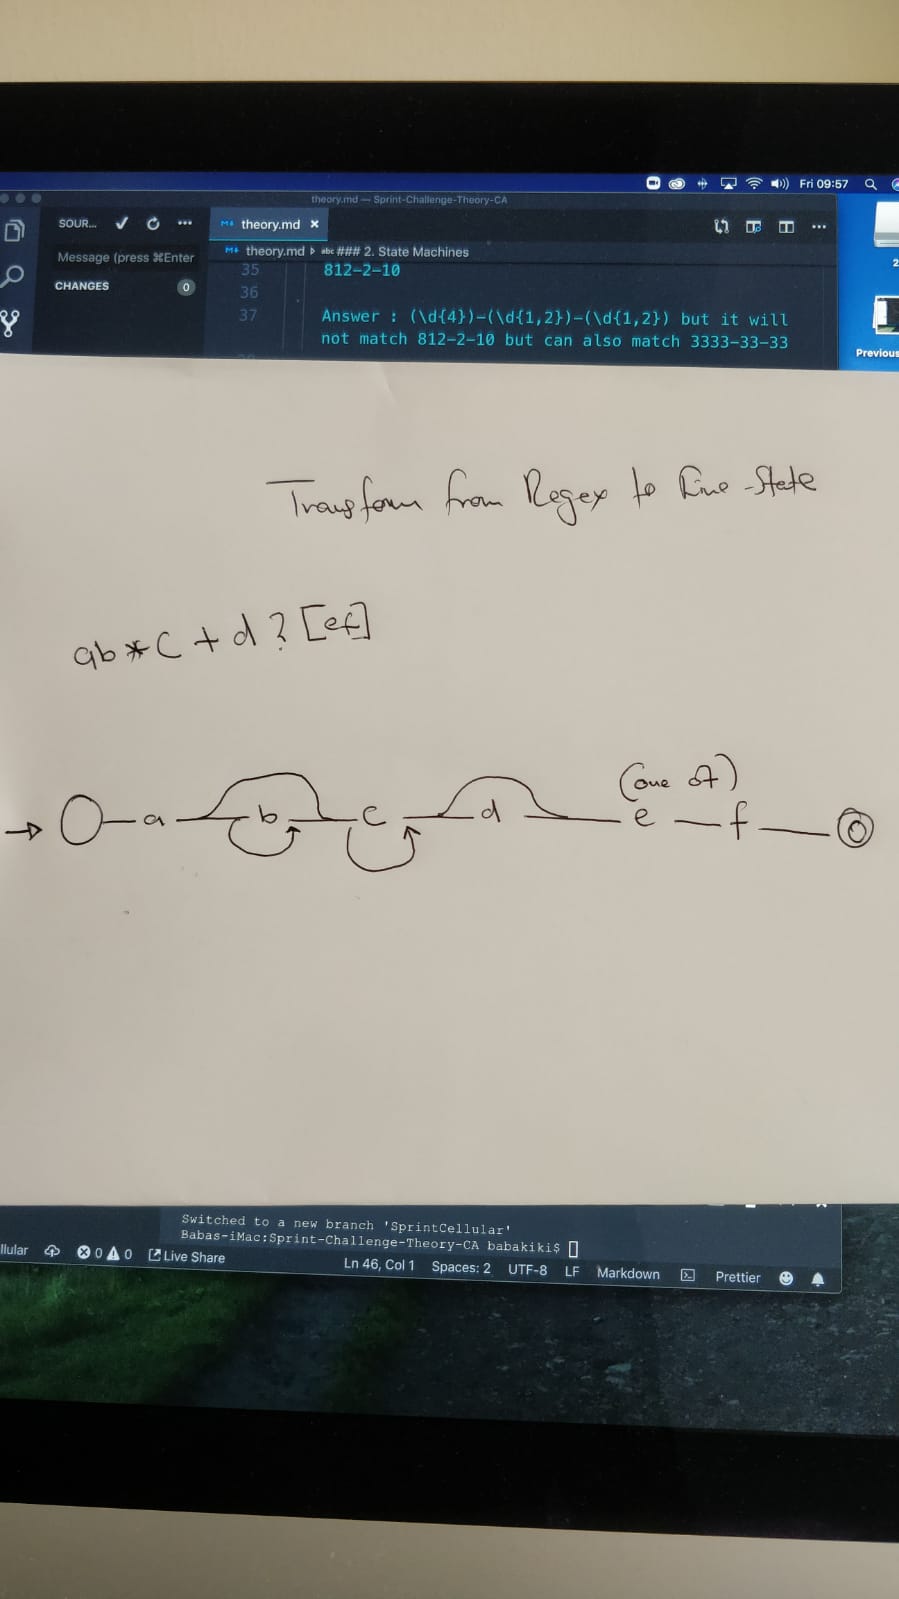 Fri 09:57
theory.md — Sprint-Challenge-Theory-CA
SOUR...
theory.md
Message (press ⌘Enter
theory.md ### 2. State Machines
CHANGES 0
35 812-2-10
36
37 Answer : (\d{4})-(\d{1,2})-(\d{1,2}) but it will
not match 812-2-10 but can also match 3333-33-33
Previous
Transform from Regex to Fine-State
ab*c+d?[ef]
(one of)
a b c d e f
Switched to a new branch 'SprintCellular'
Babas-iMac:Sprint-Challenge-Theory-CA babakiki$
llular 0 0 Live Share
Ln 46, Col 1 Spaces: 2 UTF-8 LF Markdown Prettier